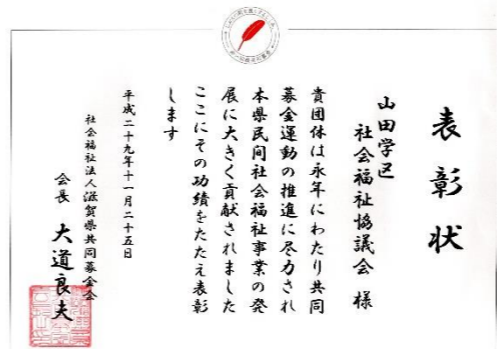 表彰状
山田学区
社会福祉協議会 様
貴団体は永年にわたり共同
募金運動の推進に尽力され
本県民間社会福祉事業の発
展に大きく貢献されました
ここにその功績をたたえ表彰
します
平成二十九年十一月二十五日
社会福祉法人滋賀県共同募金会
会長 大道良夫